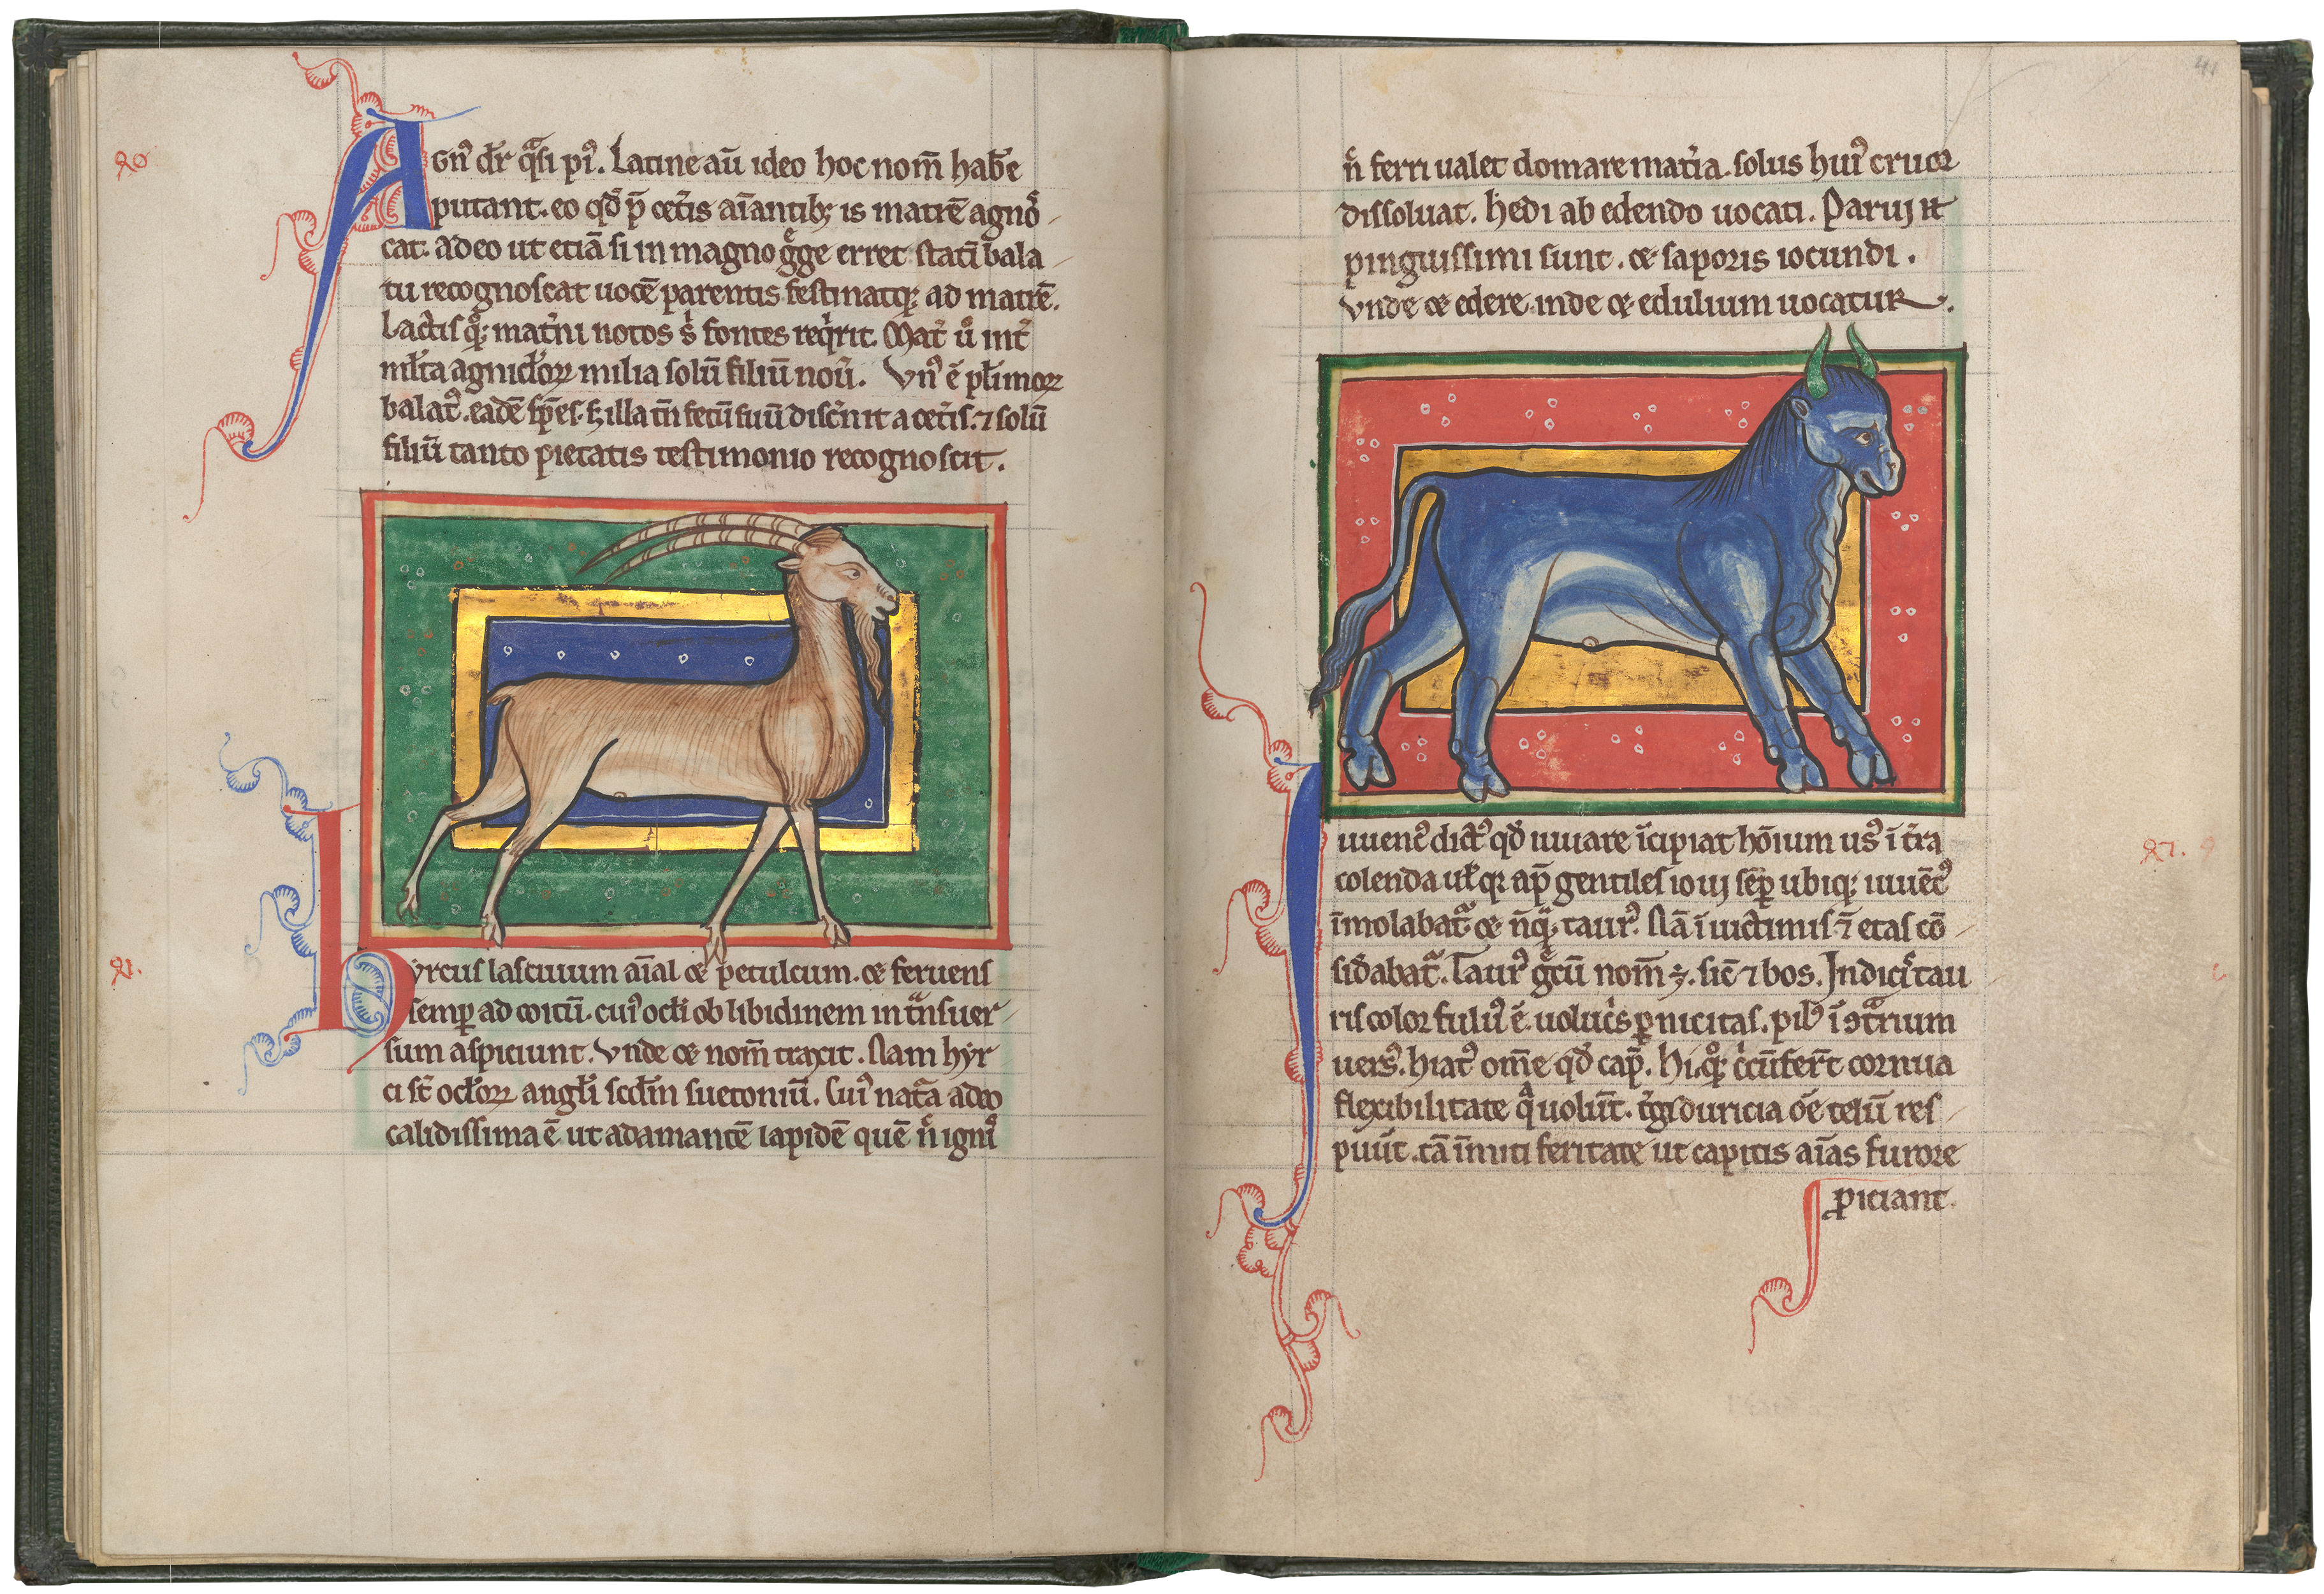 Agn᷒ dr̄ qᷓsi pi᷒. Latine aū ideo hoc nom̄ hab̄e
putant. eo qd̄ p̄ cet̄is aīantib; is matrē agno
cat. adeo ut etiā si in magno gͤge erret stati bala
tu recognoscat uocē parentis festinatq; ad matrē.
Lactis qͦ; mat̄ni notos s; fontes reqͥrit. Mat̄ uͦ int̄
ml̄ta agnicl̄oꝝ milia solū filiū nou̅. Vn᷒ ē pl̄imoꝝ
balat᷒. eadē sp̄es. s; illa tn̄ fetū suū disc̄nit a cet̄is. ⁊ solū
filiū tanto pietatis testimonio recognoscit.
20
21.
Hyrcus lasciuum aīal & petulcum. & feruens
semp̱ ad coitū. cui᷒ ocl̄i ob libidinem in tᷓnsuer
sum aspiciunt. Vnde & nom̄ traxit. Nam hyr
ci st̄ ocl̄oꝝ angl̄i scd̄m suetoniū. Cui᷒ nat̄a adeo
calidissima ē ut adamantē lapidē quē n̄ igni᷒
41
n̄ ferri ualet domare mat̄ia. solus hui᷒ cruor
dissoluat. Hedi ab edendo uocati. Parui ..
pinguissimi sunt. & saporis iocundi.
Vnde & edere. inde & edulium uocatur.
Iuuenc᷒ dict᷒ qd̄ iuuare īcipiat hōium us᷒ ī t̄ra
colenda ul̄ qꝛ ap̄ gentiles ioui sēp̱ ubiq; iuuēc᷒
īmolabatᷓ & nūqᷓ taur᷒. Nā ī uictimis ⁊̄ etas cō
sid̄abatᷓ. Taur᷒ gͤcū nom̄ ÷. sic̄ ⁊ bos. Indicͥs tau
ris color fulu᷒ ē. uolucͥs p̱nicitas. pil᷒ ī ↄtᷓrium
uers᷒. hiat᷒ om̄e qd̄ cap̄. Hi qͦ; cͥcūfer̄t cornua
flexibilitate qᷓ uolūt. t̄gi duricia ōe telū res
puūt. tā īmiti feritate ut capitis aīas furore
ꝓiciant.